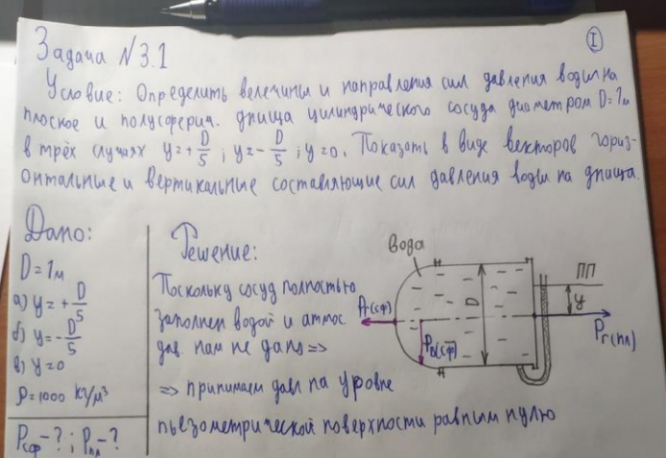 Задача №3.1
I
Условие: Определить величины и направления сил давления воды на
плоское и полусферич. днища цилиндрического сосуда диаметром D=1м
в трёх случаях y=+D/5; y=-D/5; y=0. Показать в виде векторов гориз-
онтальные и вертикальные составляющие сил давления воды на днища.
Дано:
D=1м
а) y=+D/5
б) y=-D/5
в) y=0
ρ=1000 кг/м³
Pсф-?; Pпл-?
Решение:
Поскольку сосуд полностью
заполнен водой и атмос
дав нам не дано =>
=> принимаем давл на уровне
пьезометрической поверхности равным нулю
вода
D
ПП
y
Pв(сф)
Pг(пл)